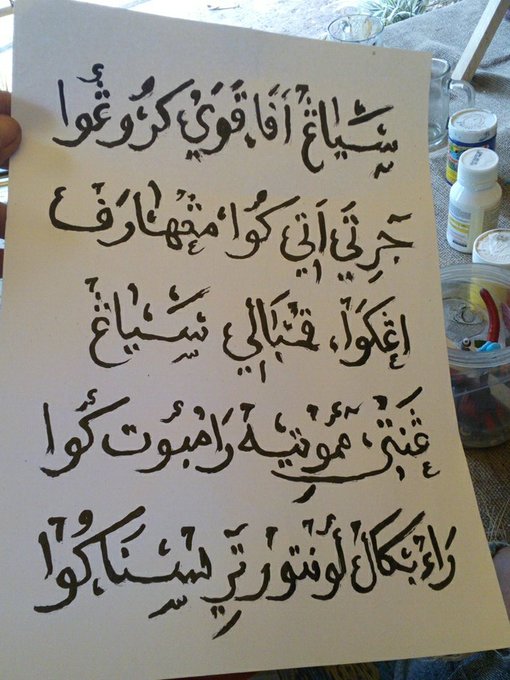 سَيَاڠْ اَفَا قَوَيْ كرُوڠُوا
جَرِتَيْ اَتِيْ كُوا مڠْهارَفْ
اڠكَوَا، قنبَالِي سَيَاڠْ
ڠنتى ممُوتيه رَامْبُوت كُوا
رَاء بكَالْ لُونتُور ترِيسنَاكُوا